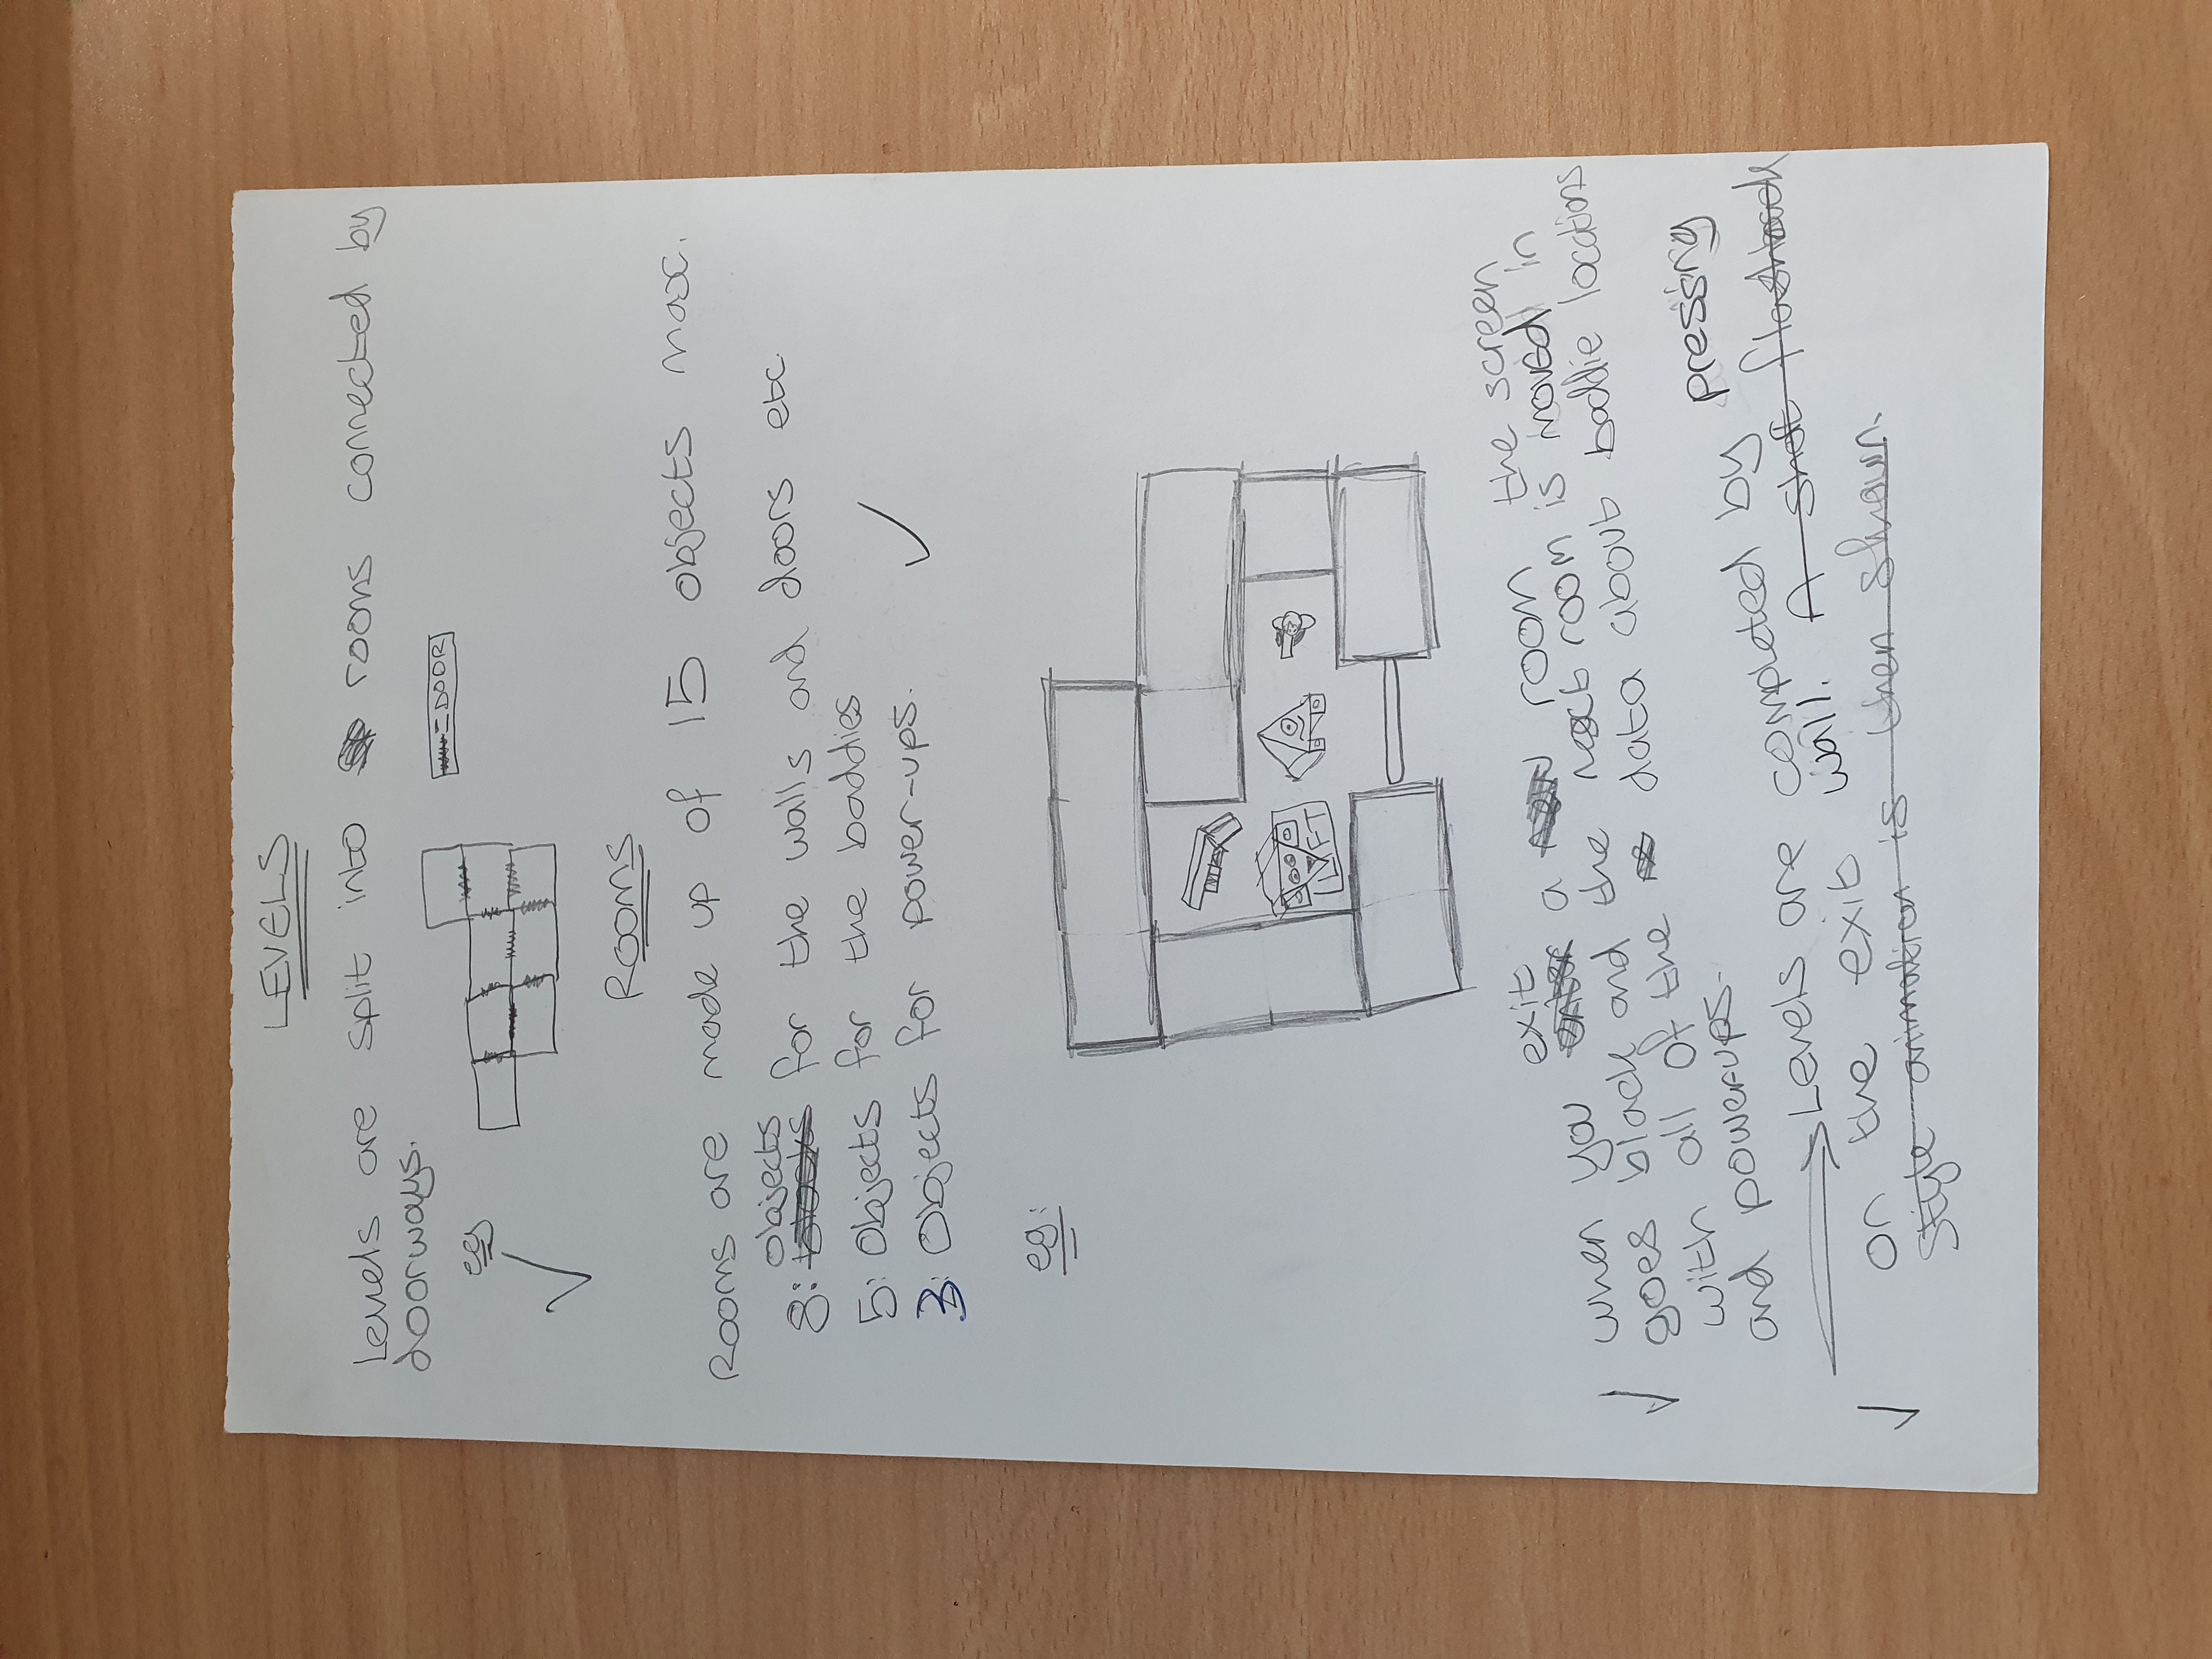 LEVELS
Levels are split into rooms connected by
doorways.
eg
= DOOR
ROOMS
Rooms are made up of 15 objects max.
objects
8: blocks for the walls and doors etc
5: Objects for the baddies
3: Objects for power-ups.
eg:
LIFT
exit
when you enter a new room the screen
goes black and the next room is moved in
with all of the data about baddie locations
and powerups.
Levels are completed by pressing
on the exit wall. A short flashback
style animation is then shown.